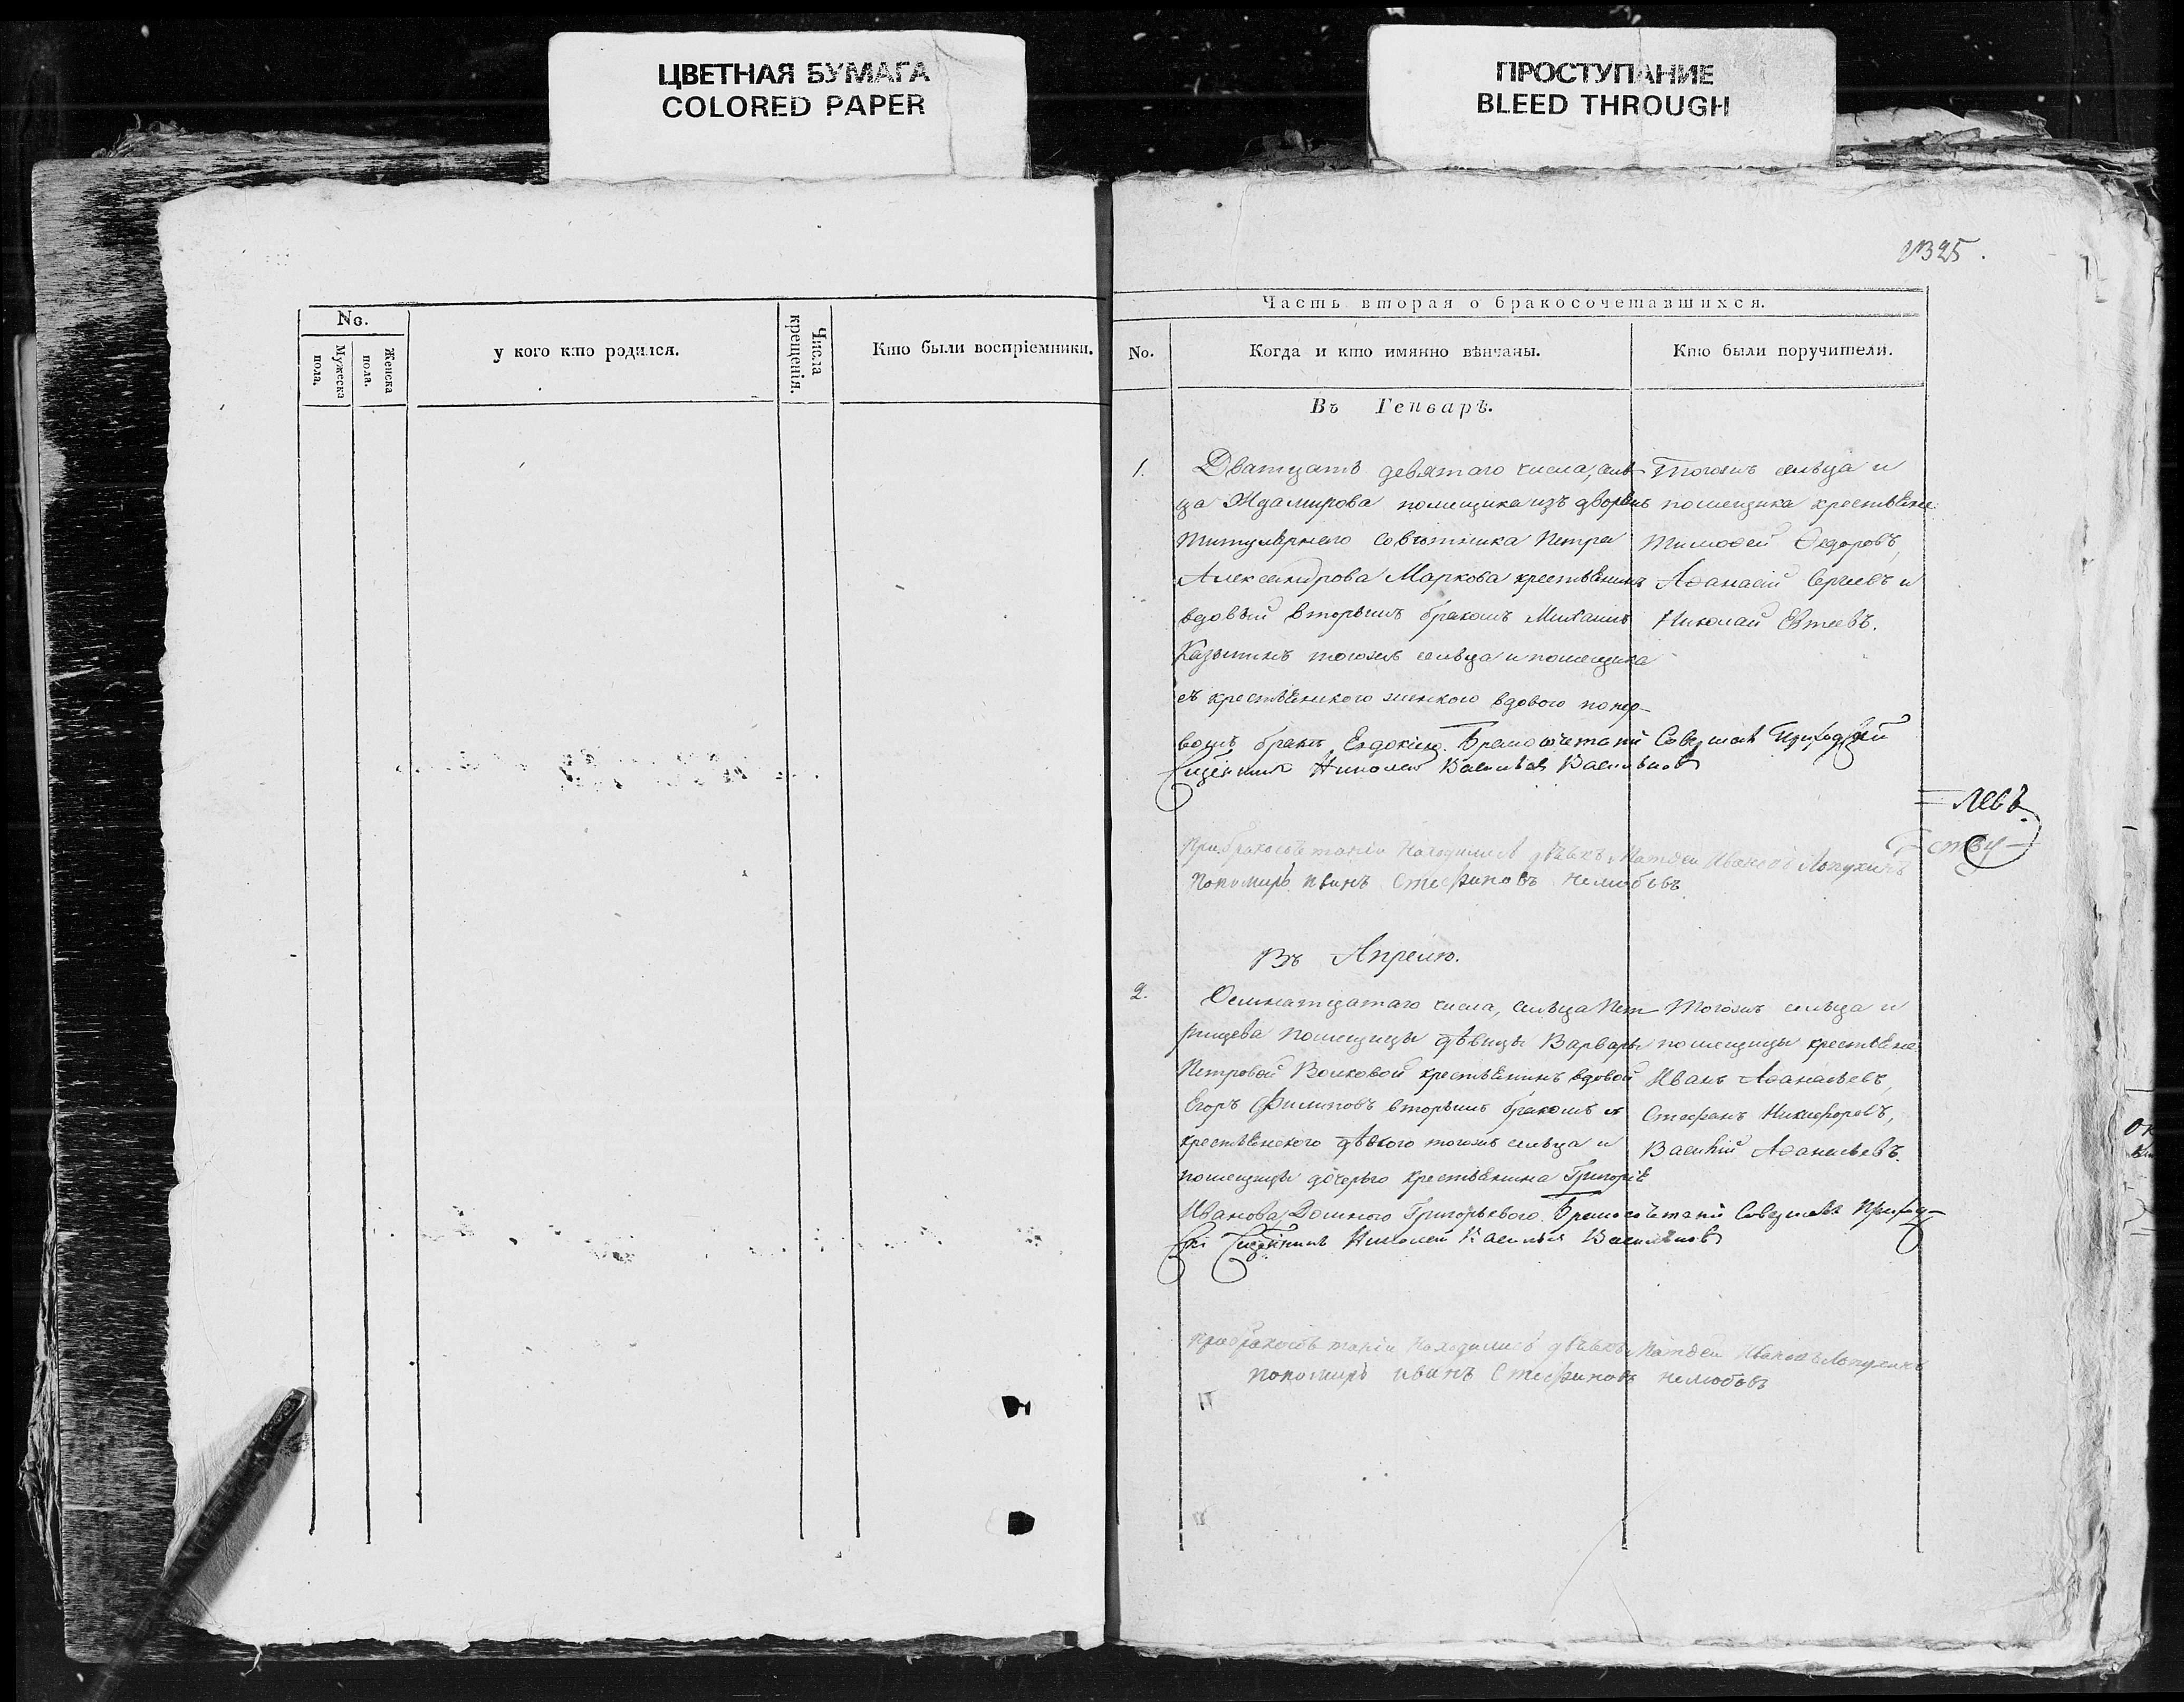 ЦВЕТНАЯ БУМАГА
COLORED PAPER
ПРОСТУПАНИЕ
BLEED THROUGH
No.
Мужеска пола.
Женска пола.
у кого кто родился.
Числа крещенія.
Кто были воспріемники.
Часть вторая о бракосочетавшихся.
No.
Когда и кто имянно вѣнчаны.
Кто были поручители.
Въ Генварѣ.
1.
Дватцать девятаго числа, сель-
ца Ждамирова помещика изъ дворянъ
титулярнаго совѣтника Петра
Александрова Маркова крестьянинъ
вдовый вторымъ бракомъ
тогожъ сельца и помещика
съ крестьянского женкого вдового попер-
вомъ бракѣ Евдокіею. Бракосочетаніе Совершалъ Приходскій
Священникъ Николай Васильевъ
Тогожъ сельца и
помещика крестьяне
Тимофей Федоровъ,
Афанасій Сергеевъ и
Николай Евтеевъ.
=левъ
При бракосочетаніи находились дьякъ Матвей Ивановъ Лопухинъ
пономарь иванъ Стефановъ
Въ Апрелѣ.
2.
Осмнатцатаго числа, сельца Пет-
рищева помещицы дѣвицы Варвары
Петровой Волковой крестьянинъ вдовой
Егоръ Филиповъ вторымъ бракомъ съ
крестьянского дѣвкого тогожъ сельца и
помещицы дочерью крестьянина Григорія
Иванова Домного Григорьевого. Бракосочетаніе Совершалъ Приход-
скій Священникъ Николай Васильевъ
Тогожъ сельца и
помещицы крестьяне
Иванъ Афанасьевъ,
Стефанъ Никифоровъ,
Василій Афанасьевъ.
При бракосочетаніи находились дьякъ Матвей Ивановъ Лопухинъ
пономарь иванъ Стефановъ